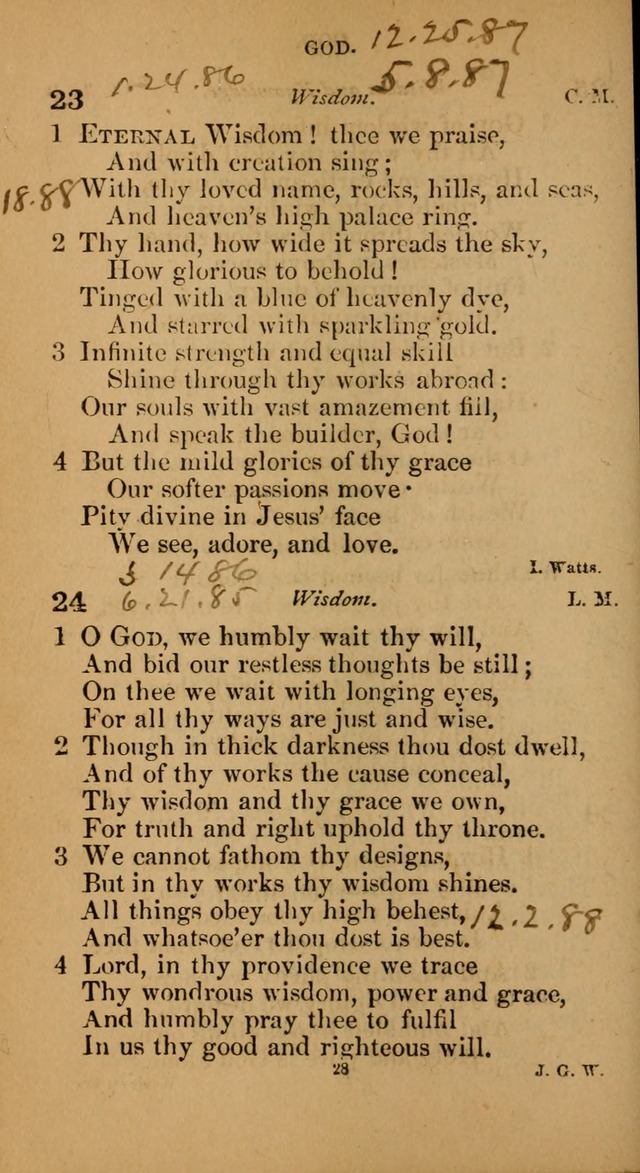 GOD. 12.25.87
1.24.86 5.8.87
23 Wisdom. C. M.
1 ETERNAL Wisdom ! thee we praise,
And with creation sing ;
18.88 With thy loved name, rocks, hills, and seas,
And heaven's high palace ring.
2 Thy hand, how wide it spreads the sky,
How glorious to behold !
Tinged with a blue of heavenly dye,
And starred with sparkling gold.
3 Infinite strength and equal skill
Shine through thy works abroad :
Our souls with vast amazement fill,
And speak the builder, God !
4 But the mild glories of thy grace
Our softer passions move·
Pity divine in Jesus' face
We see, adore, and love.
I. Watts.
3 14 86
24 6.21.85 Wisdom. L. M.
1 O GOD, we humbly wait thy will,
And bid our restless thoughts be still ;
On thee we wait with longing eyes,
For all thy ways are just and wise.
2 Though in thick darkness thou dost dwell,
And of thy works the cause conceal,
Thy wisdom and thy grace we own,
For truth and right uphold thy throne.
3 We cannot fathom thy designs,
But in thy works thy wisdom shines.
All things obey thy high behest, 12.2.88
And whatsoe'er thou dost is best.
4 Lord, in thy providence we trace
Thy wondrous wisdom, power and grace,
And humbly pray thee to fulfil
In us thy good and righteous will.
28 J. G. W.